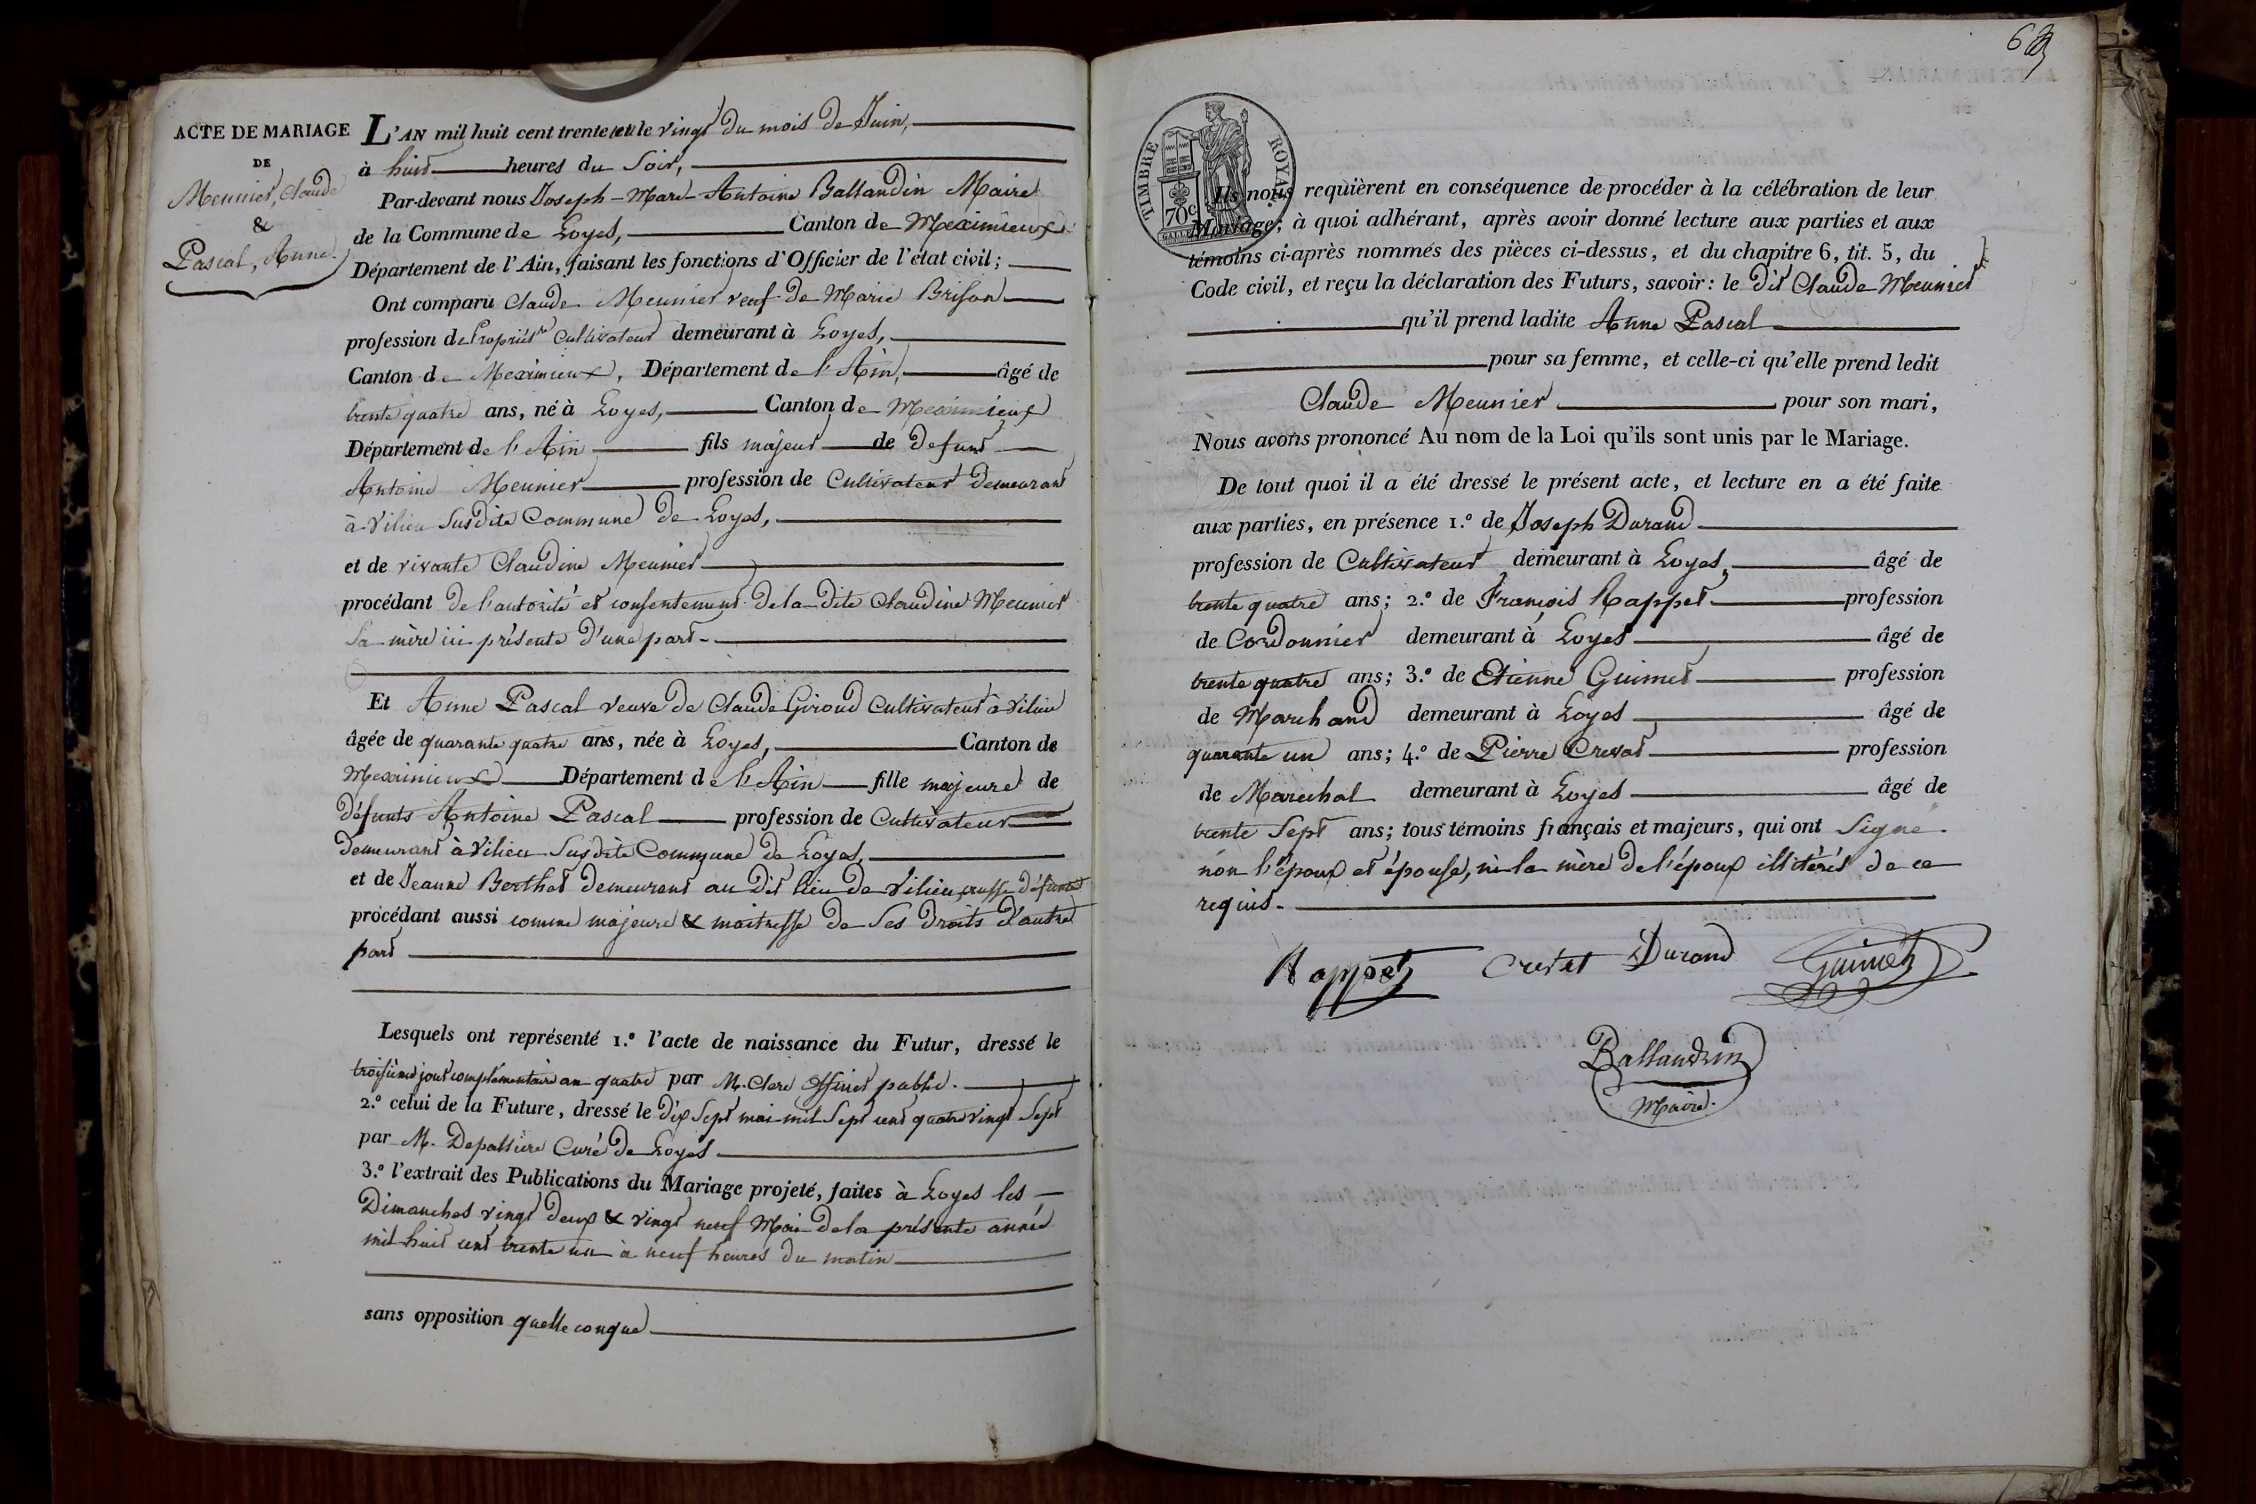 ACTE DE MARIAGE
DE
Meunier, Claude
&
Pascal, Anne.
L'AN mil huit cent trente et un le vingt du mois de Juin,
à huit heures du Soir,
Par-devant nous Joseph-Marie-Antoine Ballandrin Maire
de la Commune de Loyes, Canton de Meximieux
Département de l'Ain, faisant les fonctions d'Officier de l'état civil;
Ont comparu Claude Meunier veuf de Marie Brison
profession de Propriét.re Cultivateur demeurant à Loyes,
Canton de Meximieux, Département de l'Ain, âgé de
trente quatre ans, né à Loyes, Canton de Meximieux
Département de l'Ain fils majeur de defunt
Antoine Meunier profession de Cultivateur demeurant
à Vilieu Susdite Commune de Loyes,
et de vivante Claudine Meunier
procédant de l'autorité et consentement de la dite Claudine Meunier
Sa mère ici présente d'une part.
Et Anne Pascal veuve de Claude Giroud Cultivateur à Vilieu
âgée de quarante quatre ans, née à Loyes, Canton de
Meximieux Département de l'Ain fille majeure de
défunts Antoine Pascal profession de Cultivateur
demeurant à Vilieu Susdite Commune de Loyes,
et de Jeanne Berthet demeurant au dit lieu de Vilieu, aussi défunte
procédant aussi comme majeure & maitresse de Ses droits d'autre
part
Lesquels ont représenté 1.º l'acte de naissance du Futur, dressé le
troisième jour complémentaire an quatre par M. Clerc officier public.
2.º celui de la Future, dressé le dix Sept mai mil Sept cent quatre vingt Sept
par M. Depallière Curé de Loyes
3.º l'extrait des Publications du Mariage projeté, faites à Loyes les
Dimanches vingt deux & vingt neuf Mai de la présente année
mil huit cent trente un à neuf heures du matin
sans opposition quelle conque
TIMBRE ROYAL
70c
Ils nous requièrent en conséquence de procéder à la célébration de leur
Mariage; à quoi adhérant, après avoir donné lecture aux parties et aux
témoins ci-après nommés des pièces ci-dessus, et du chapitre 6, tit. 5, du
Code civil, et reçu la déclaration des Futurs, savoir: le dit Claude Meunier
qu'il prend ladite Anne Pascal
pour sa femme, et celle-ci qu'elle prend ledit
Claude Meunier pour son mari,
Nous avons prononcé Au nom de la Loi qu'ils sont unis par le Mariage.
De tout quoi il a été dressé le présent acte, et lecture en a été faite
aux parties, en présence 1.º de Joseph Durand
profession de Cultivateur demeurant à Loyes, âgé de
trente quatre ans; 2.º de François Rappet profession
de Cordonnier demeurant à Loyes âgé de
trente quatre ans; 3.º de Etienne Guimet profession
de Marchand demeurant à Loyes âgé de
quarante un ans; 4.º de Pierre Crevat profession
de Maréchal demeurant à Loyes âgé de
trente Sept ans; tous témoins français et majeurs, qui ont Signé
non l'époux et épouse, ni la mère de l'époux illitérés de ce
requis.
Rappet Crevat Durand Guimet
Ballandrin
Maire.